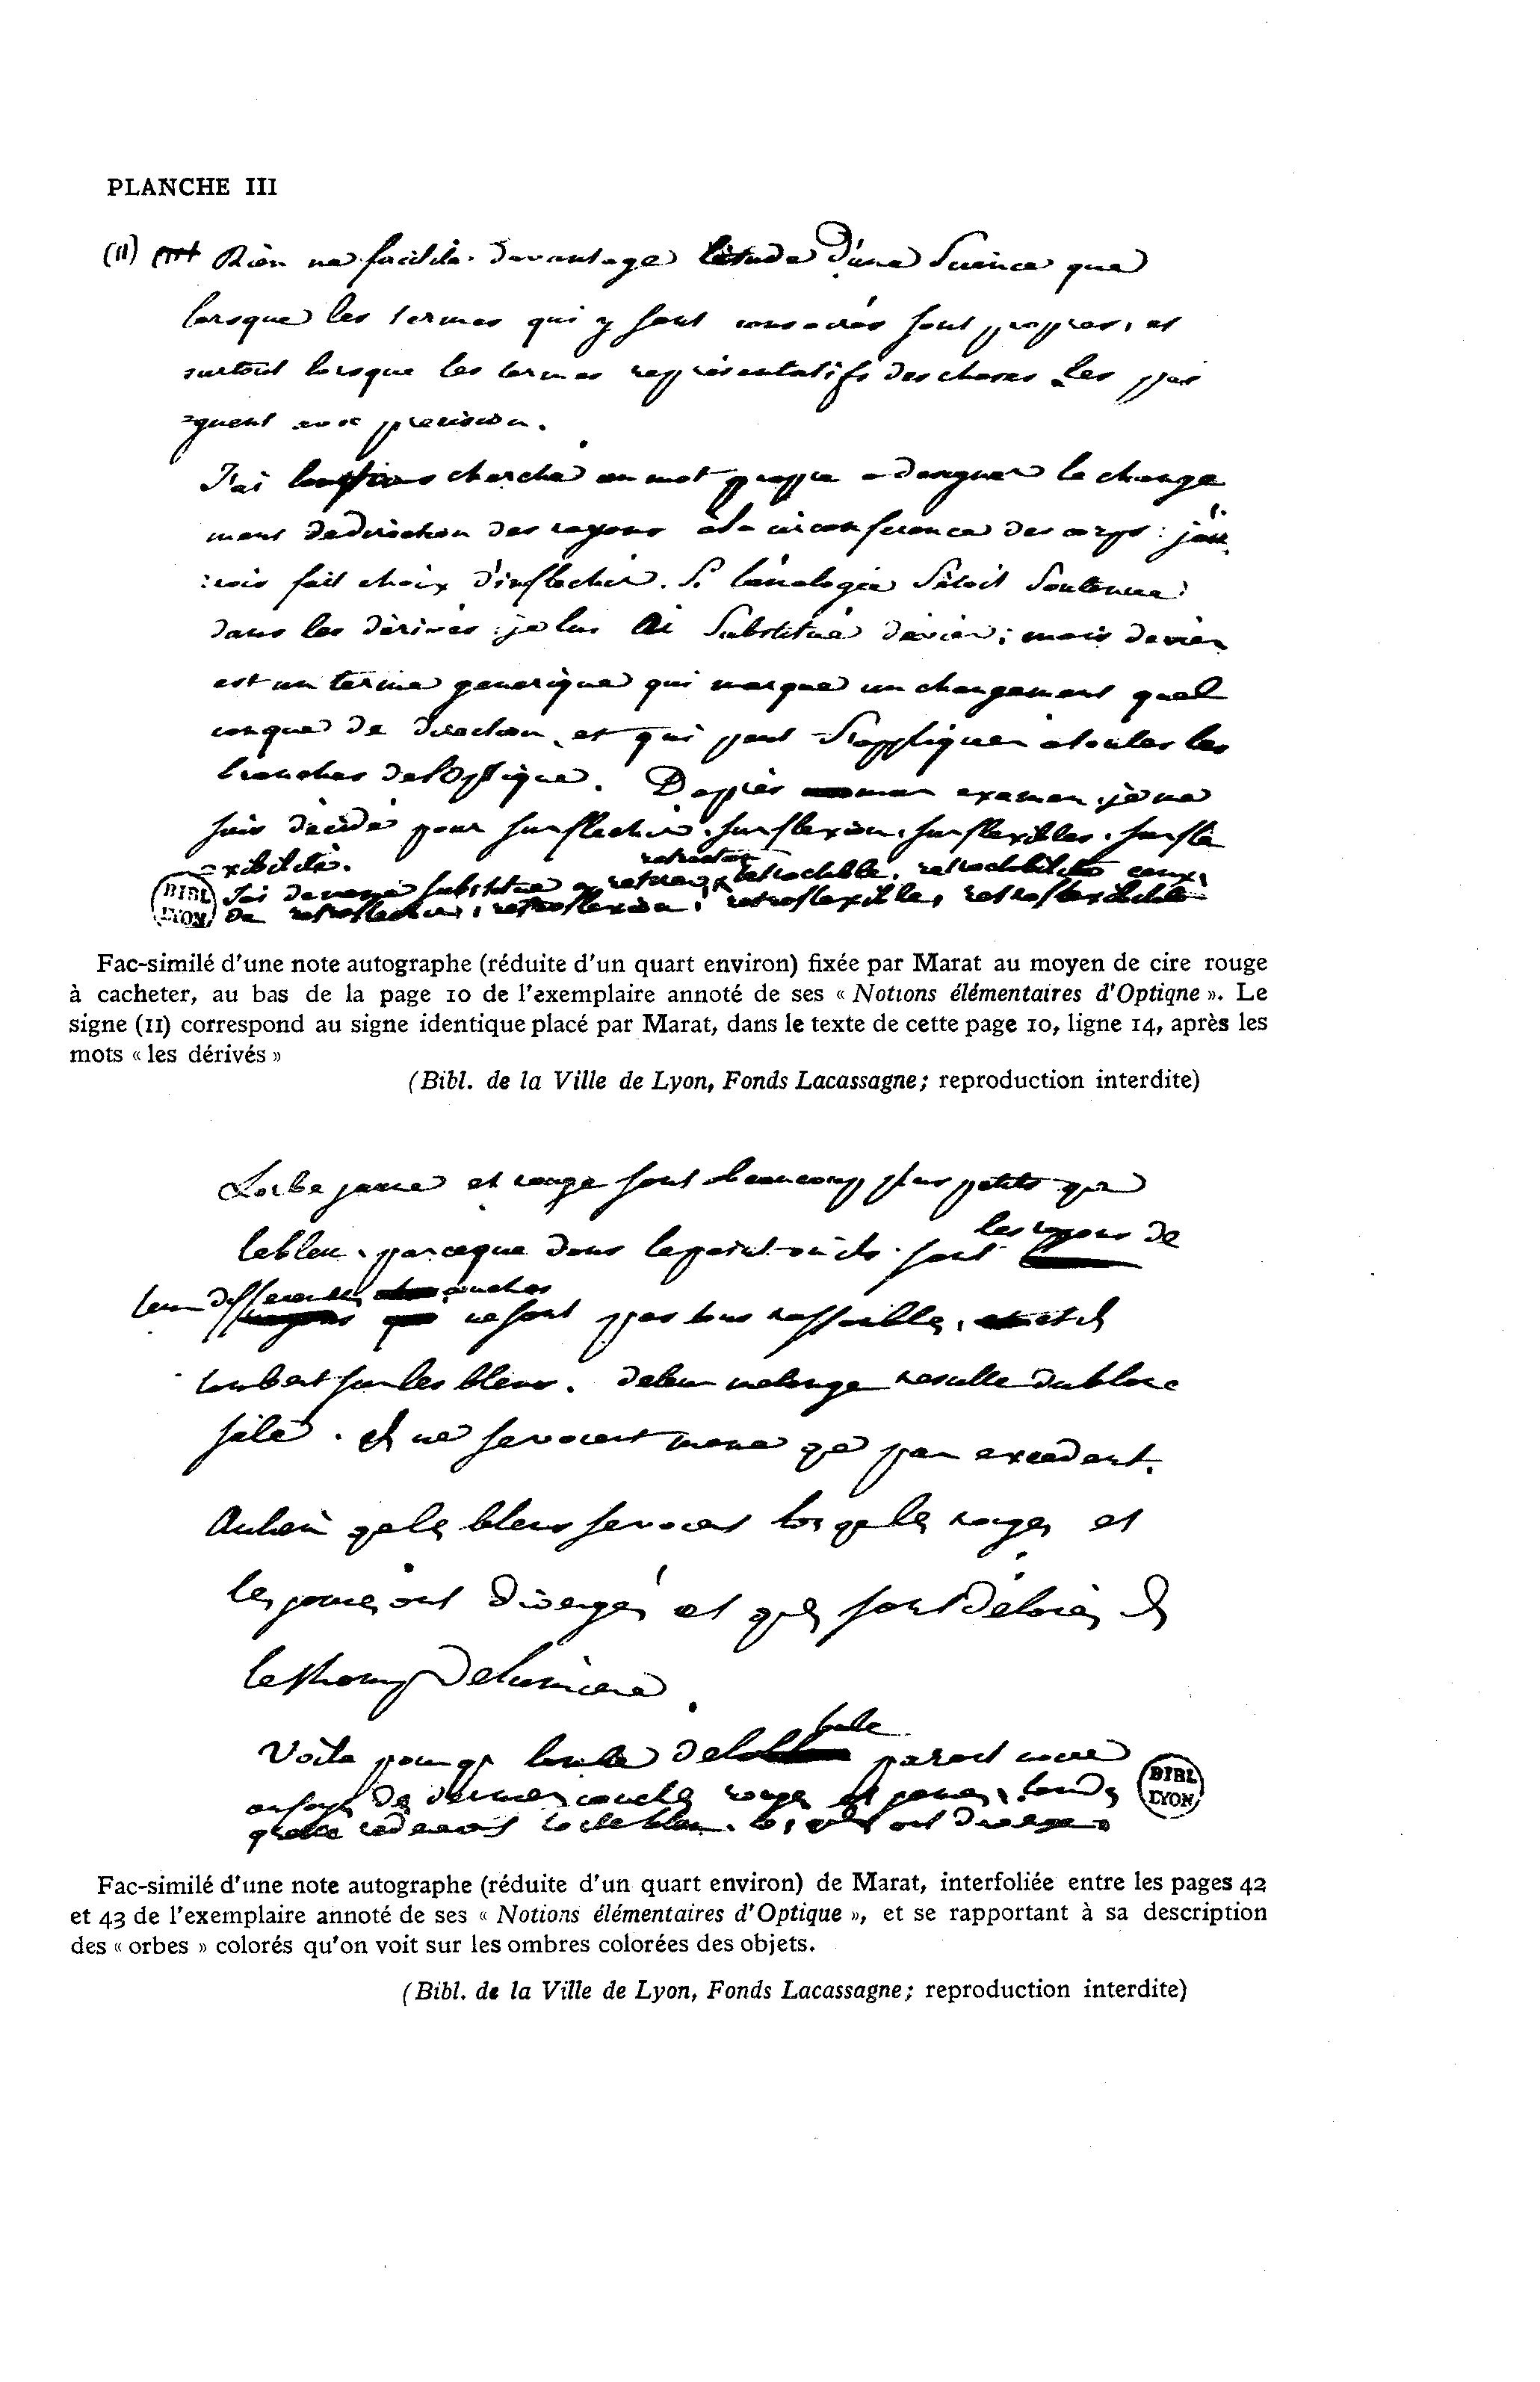 PLANCHE III
(11) Rien ne facilite davantage l'étude d'une Science que
lorsque les termes qui y sont consacrés sont propres, et
surtout lorsque les termes représentatifs des choses les pei
gnent avec precision.
J'ai longtems cherché un mot propre a designer le change
ment de direction des rayons à la circonference des corps : j'au
rois fait choix d'inflechir. Si l'analogie s'étoit soutenue
dans les dérivés : je lui ai substitué dévier ; mais devier
est un terme generique qui marque un changement quel
conque de direction, et qui peut s'appliquer a toutes les
branches de l'Optique. D'après examen, je me
suis décidé pour surflechir, surflexion, surflexibles, surfle
xibilité.
BIBL LYON
J'ai de meme substitué a retractible, retractibilité ceux
de retroflechir, retroflexion, retroflexible, retroflexibilité
Fac-similé d'une note autographe (réduite d'un quart environ) fixée par Marat au moyen de cire rouge
à cacheter, au bas de la page 10 de l'exemplaire annoté de ses « Notions élémentaires d'Optiqne ». Le
signe (11) correspond au signe identique placé par Marat, dans le texte de cette page 10, ligne 14, après les
mots « les dérivés »
(Bibl. de la Ville de Lyon, Fonds Lacassagne; reproduction interdite)
L'orbe jaune et rouge sont beaucoup plus petits que
le bleu, parceque dans le point où ils sont les rayons de
leur differentes couches
ne sont pas tous rassemblés, et ils
tombent sur les bleus. de leur melange resulte du blanc
sale. Ils ne se voient meme que par excedent.
Aulieu que les bleus se voient lorsque les rouges et
les jaunes ont divergés et qu'ils sont
de lumiere
Voila pourquoi l'orbe de la boule paroit
BIBL LYON
Fac-similé d'une note autographe (réduite d'un quart environ) de Marat, interfoliée entre les pages 42
et 43 de l'exemplaire annoté de ses « Notions élémentaires d'Optique », et se rapportant à sa description
des « orbes » colorés qu'on voit sur les ombres colorées des objets.
(Bibl. de la Ville de Lyon, Fonds Lacassagne; reproduction interdite)